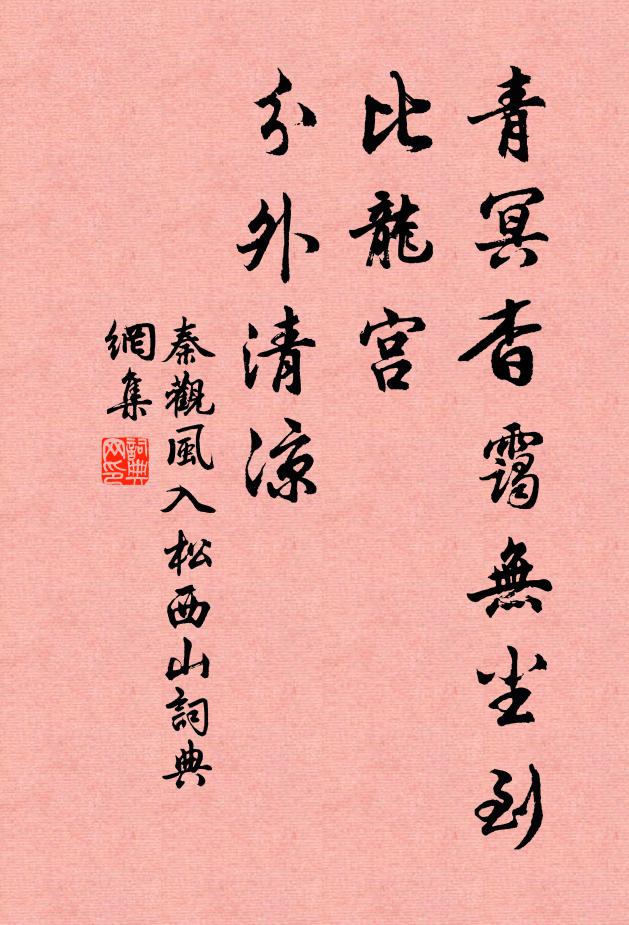 青冥杳靄無尘到
比龍宫
分外清凉
秦觀風入松西山詞典
網集
詞典
网印